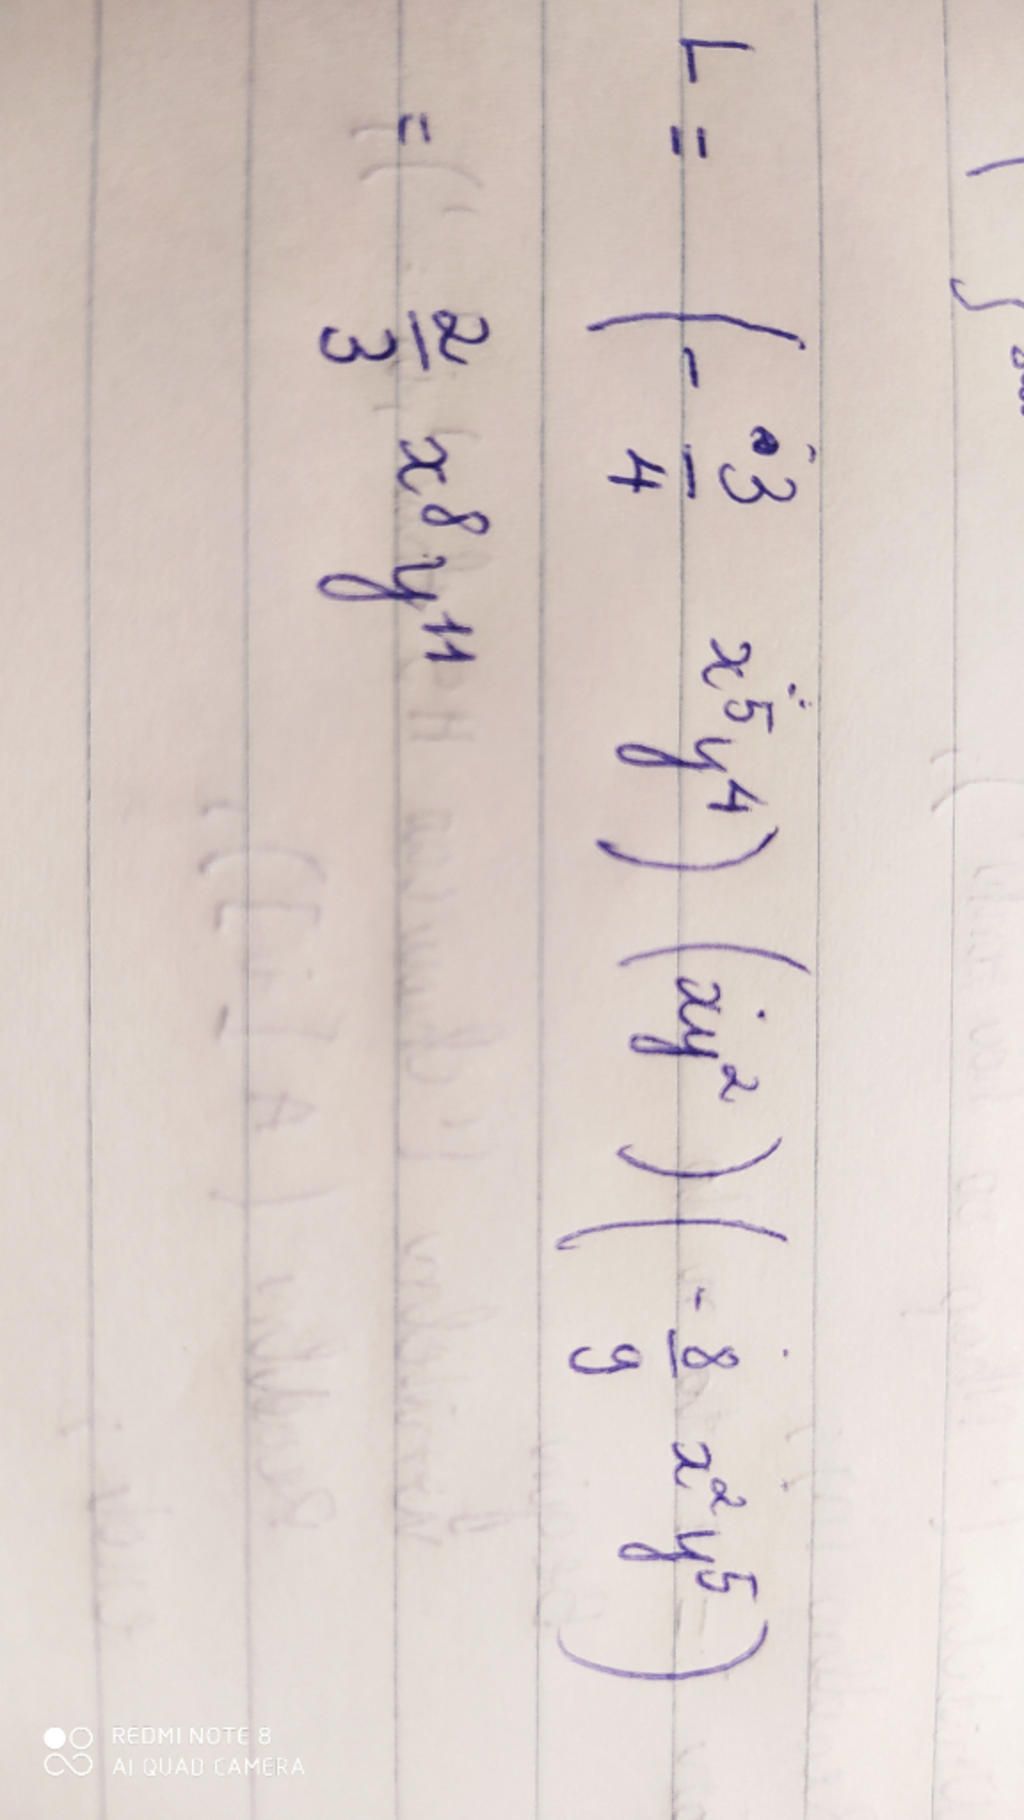 L = (-3/4 x⁵y⁴) (xy²) (-8/9 x²y⁵)
= 2/3 x⁸y¹¹
REDMI NOTE 8
AI QUAD CAMERA